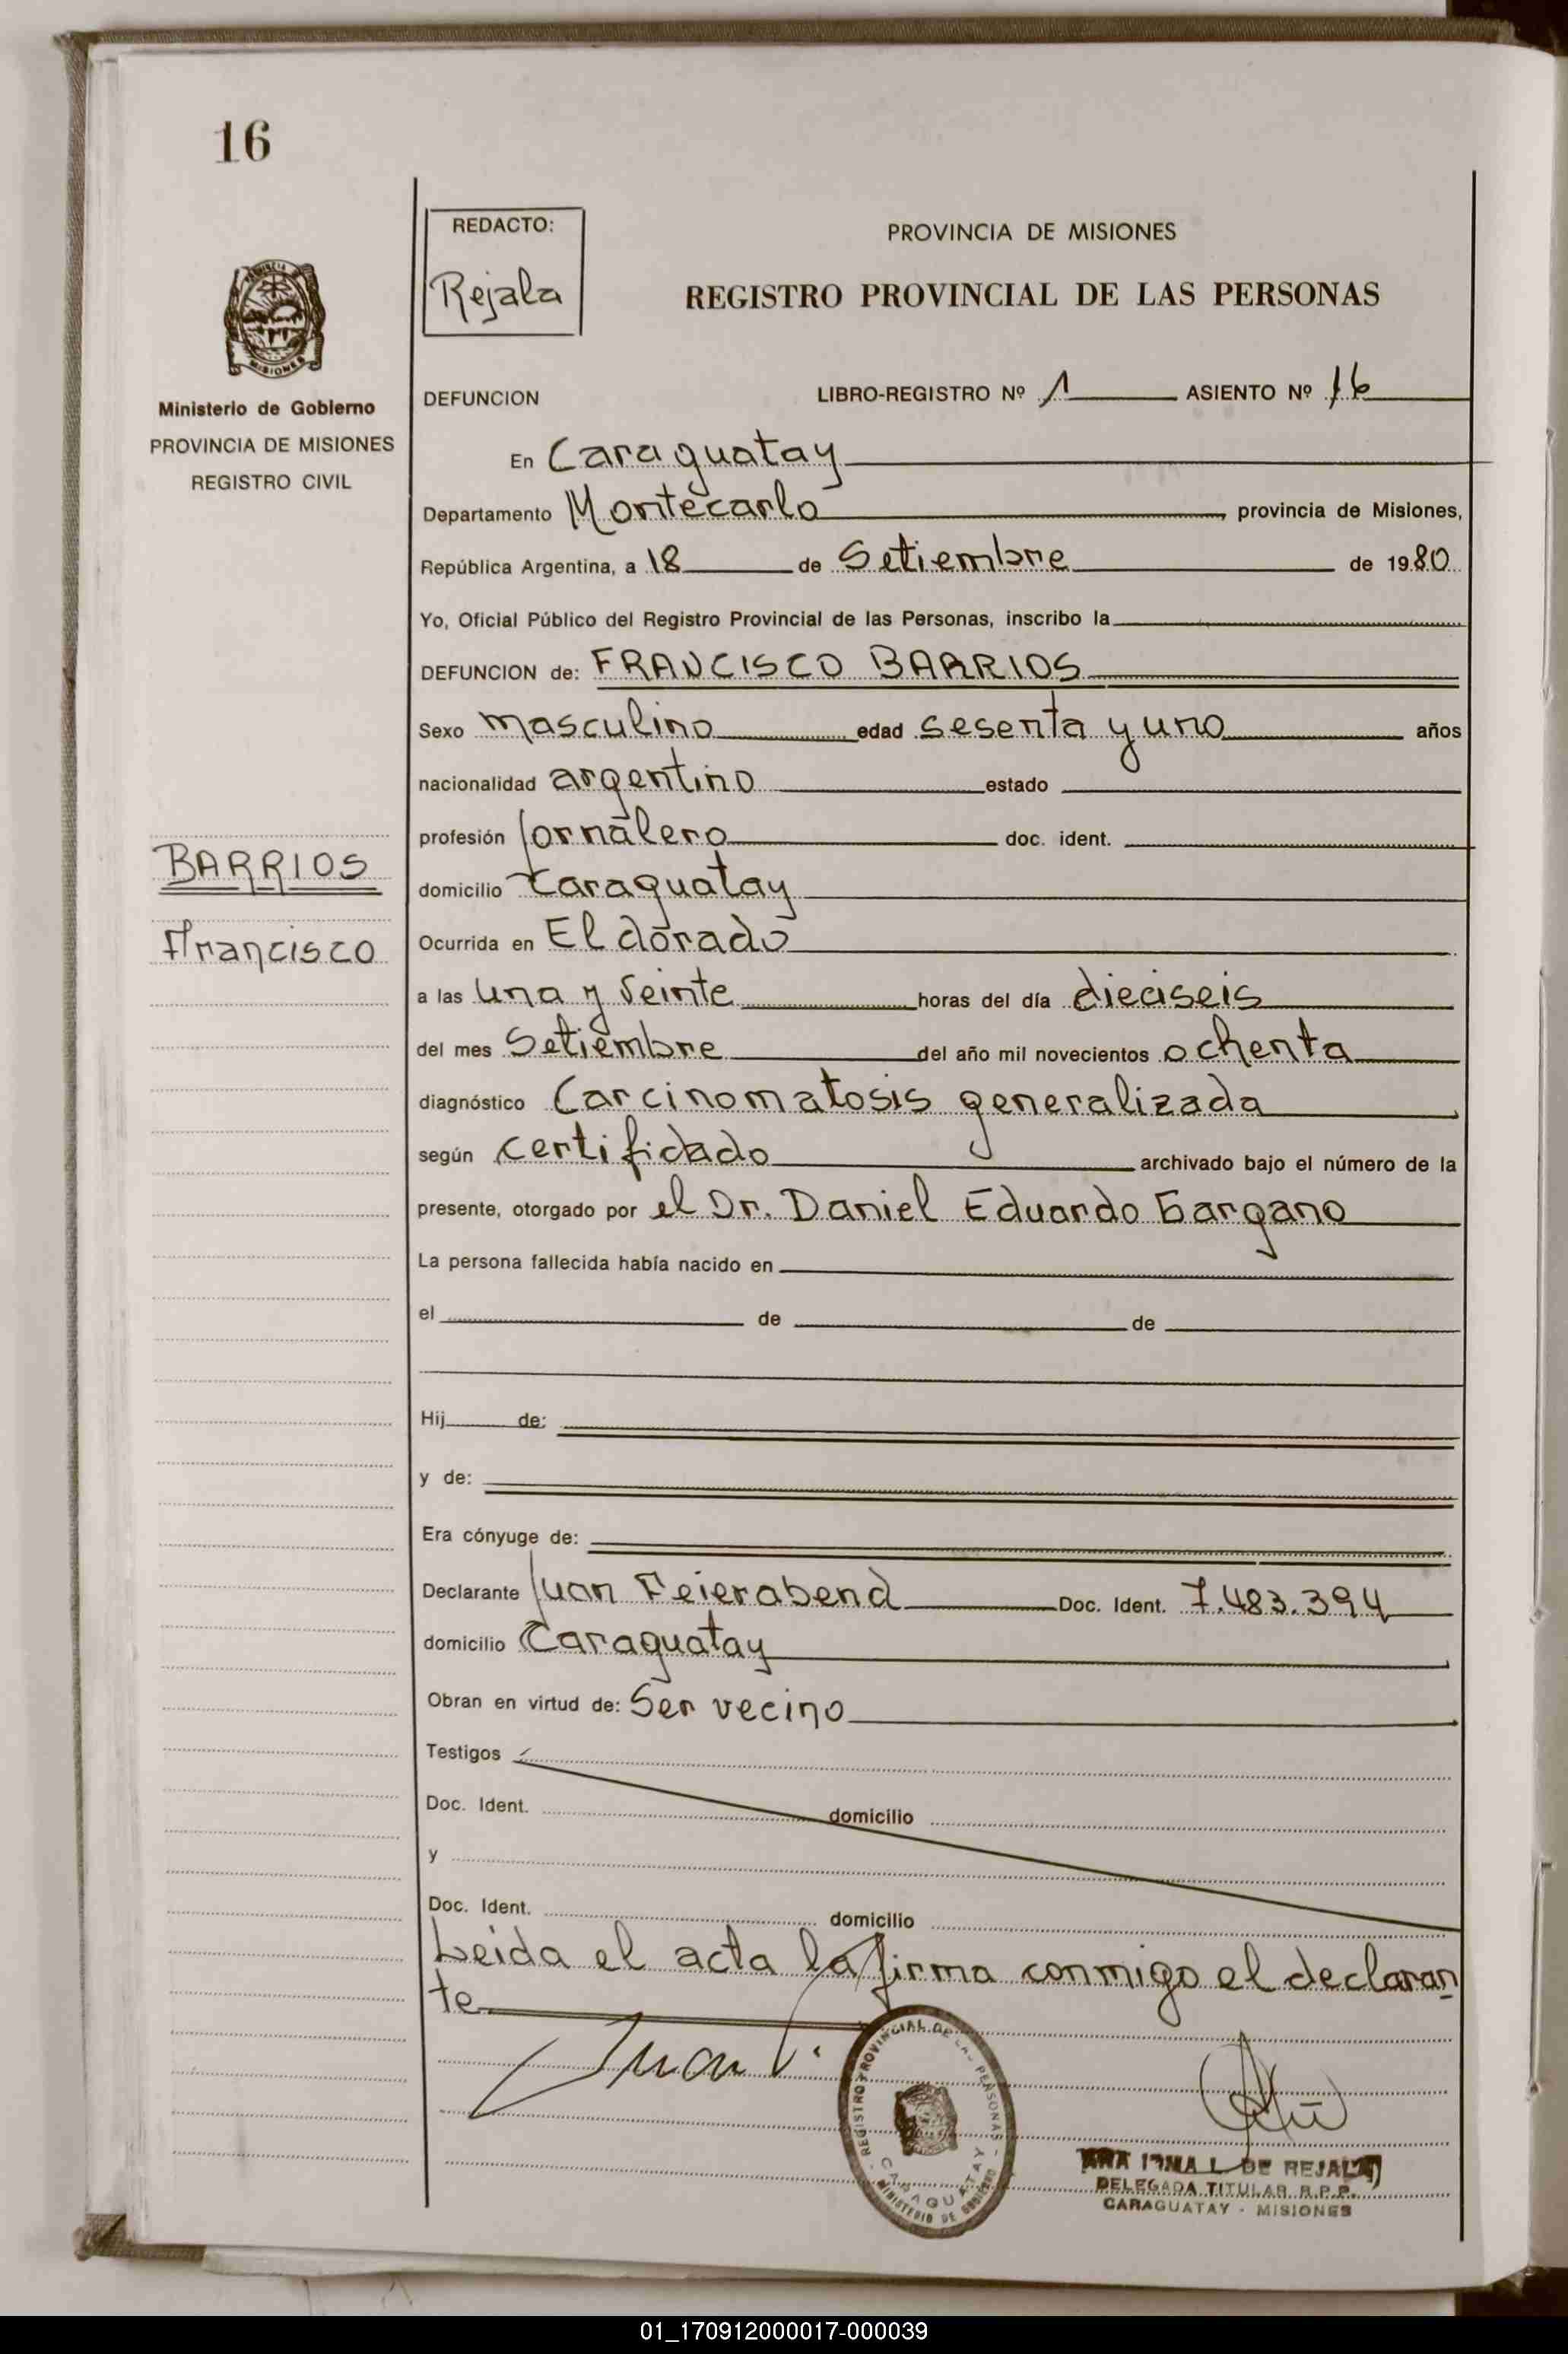 16
REDACTO:
Rejala
PROVINCIA DE MISIONES
REGISTRO PROVINCIAL DE LAS PERSONAS
MISIONES
Ministerio de Gobierno
PROVINCIA DE MISIONES
REGISTRO CIVIL
DEFUNCION LIBRO-REGISTRO Nº 1 ASIENTO Nº 16
En Caraguatay
Departamento Montecarlo, provincia de Misiones,
República Argentina, a 18 de Setiembre de 1980
Yo, Oficial Público del Registro Provincial de las Personas, inscribo la
DEFUNCION de: FRANCISCO BARRIOS
Sexo masculino edad sesenta y uno años
nacionalidad argentino estado
profesión Jornalero doc. ident.
BARRIOS
Francisco
domicilio Caraguatay
Ocurrida en Eldorado
a las una y veinte horas del día dieciseis
del mes Setiembre del año mil novecientos ochenta
diagnóstico Carcinomatosis generalizada
según certificado archivado bajo el número de la
presente, otorgado por el Dr. Daniel Eduardo Gargano
La persona fallecida había nacido en
el de de
Hij de:
y de:
Era cónyuge de:
Declarante Juan Feierabend Doc. Ident. 7.483.394
domicilio Caraguatay
Obran en virtud de: Ser vecino
Testigos
Doc. Ident. domicilio
y
Doc. Ident. domicilio
Leida el acta la firma conmigo el declaran
te
Juan
REGISTRO PROVINCIAL DE LAS PERSONAS
CARAGUATAY
MINISTERIO DE GOBIERNO
IRMA L. DE REJALA
DELEGADA TITULAR R.P.P.
CARAGUATAY - MISIONES
01_170912000017-000039